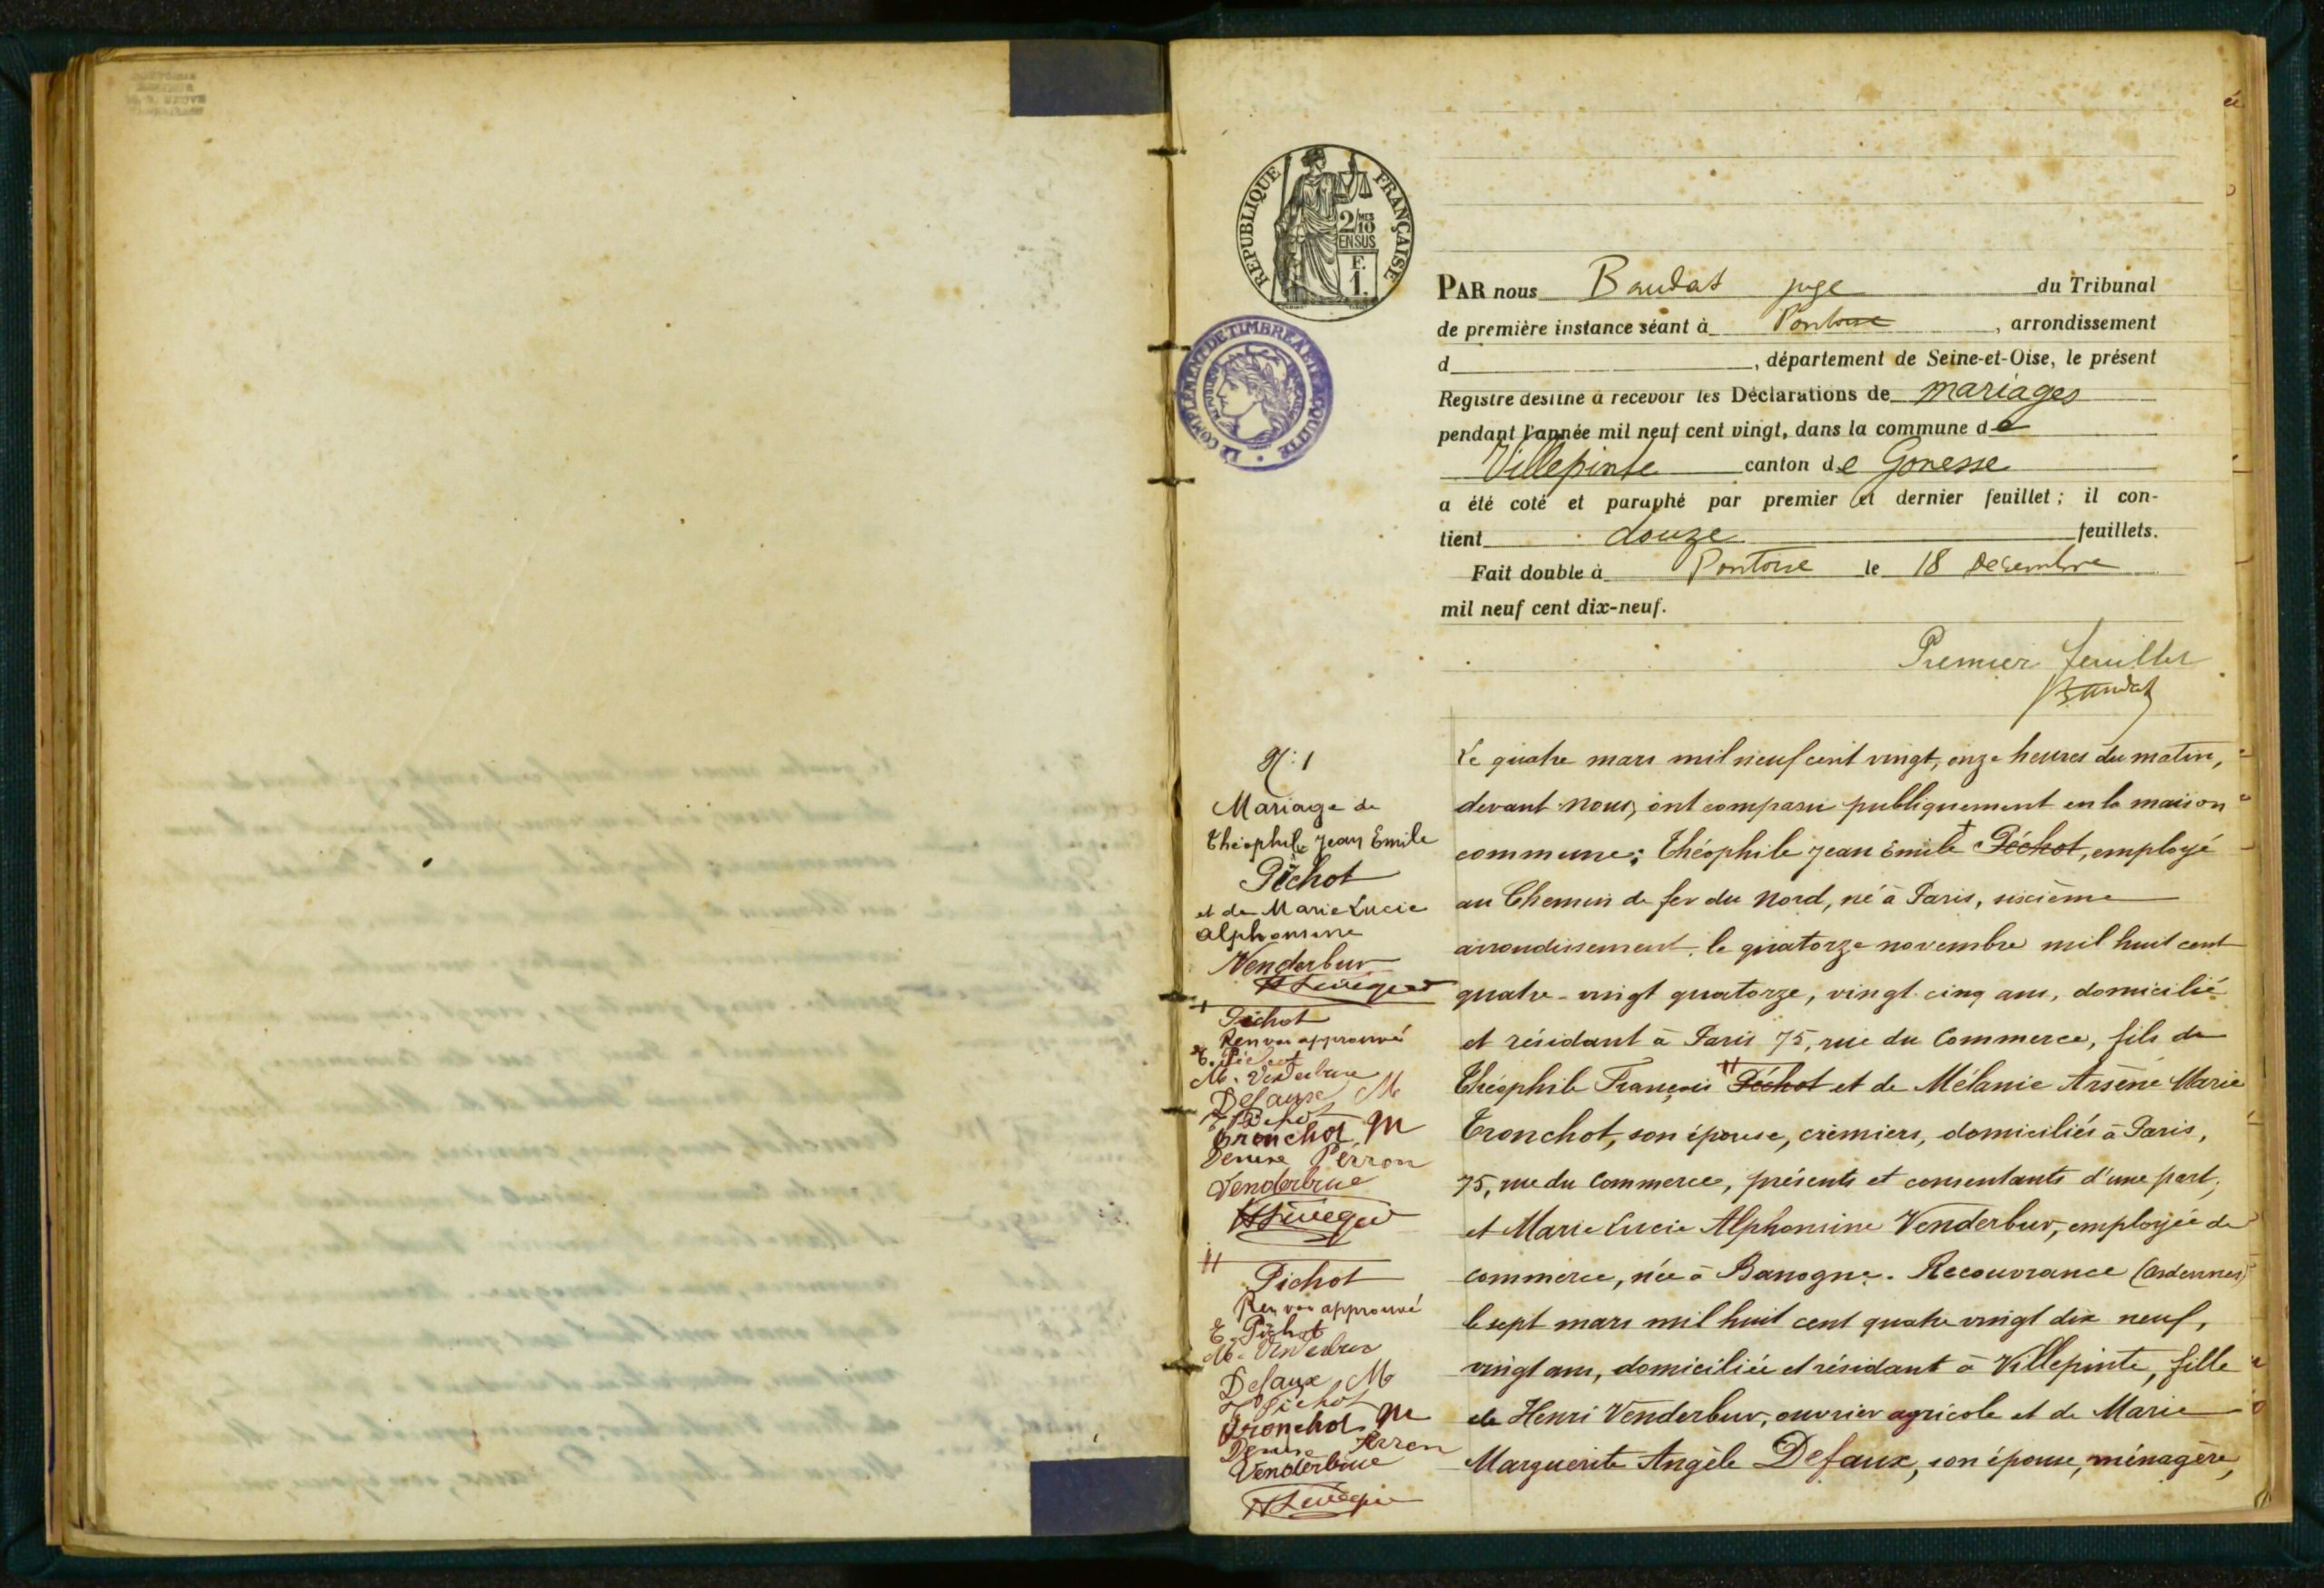 REPUBLIQUE FRANÇAISE
2/10 MES
EN SUS
F.
1.
LE COMPLEMENT DE TIMBRE A ETE ACQUITTE
PAR nous Baudat juge du Tribunal
de première instance séant à Pontoise, arrondissement
d , département de Seine-et-Oise, le présent
Registre destiné à recevoir les Déclarations de mariages
pendant l'année mil neuf cent vingt, dans la commune de
Villepinte canton de Gonesse
a été coté et paraphé par premier et dernier feuillet ; il con-
tient douze feuillets.
Fait double à Pontoise le 18 Decembre
mil neuf cent dix-neuf.
Premier feuillet
Baudat
N: 1
Mariage de
Théophile Jean Emile
Pichot
et de Marie Lucie
Alphonsine
Venderbur
+
Pichot
Renvoi approuvé
E. Pichot
M. Venderbure
Defaux M
Pichot
Tronchot M
Denise Perron
Venderbrue
++
Pichot
Renvoi approuvé
E. Pichot
M. Venderbur
Defaux M
Pichot
Tronchot M
Denise Perron
Venderbrue
Le quatre mars mil neuf cent vingt, onze heures du matin,
devant nous, ont comparu publiquement en la maison
commune: Théophile Jean Emile + Péchot, employé
au Chemin de fer du Nord, né à Paris, sixième
arrondissement, le quatorze novembre mil huit cent
quatre-vingt quatorze, vingt-cinq ans, domicilié
et résidant à Paris 75, rue du Commerce, fils de
Théophile François ++ Péchot et de Mélanie Arsène Marie
Tronchot, son épouse, crémiers, domiciliés à Paris,
75, rue du Commerce, présents et consentants d'une part;
et Marie Lucie Alphonsine Venderbur, employée de
commerce, née à Banogne-Recouvrance (Ardennes)
le sept mars mil huit cent quatre vingt dix neuf,
vingt ans, domiciliée et résidant à Villepinte, fille
de Henri Venderbur, ouvrier agricole et de Marie
Marguerite Angèle Defaux, son épouse, ménagère,